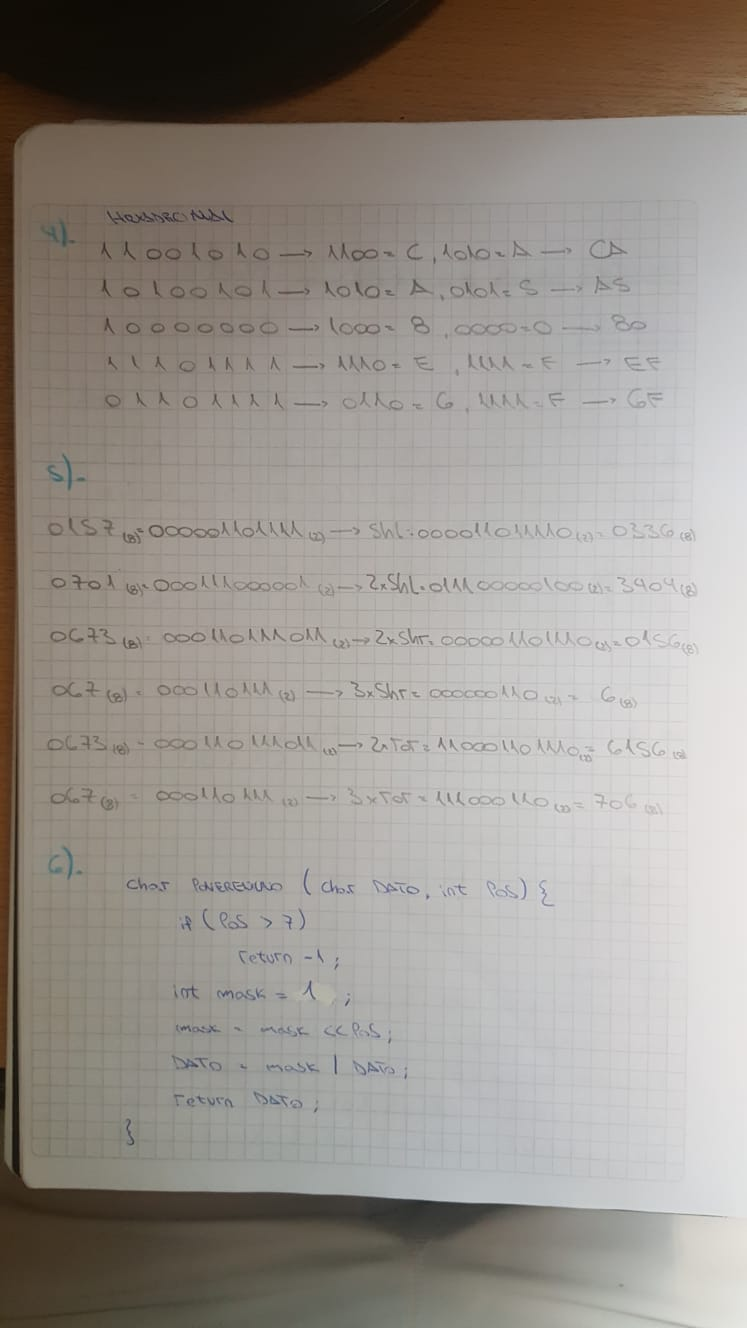 HEXADECIMAL
4).
11001010 → 1100 = C, 1010 = A → CA
10100101 → 1010 = A, 0101 = 5 → A5
10000000 → 1000 = 8, 0000 = 0 → 80
11101111 → 1110 = E, 1111 = F → EF
01101111 → 0110 = 6, 1111 = F → 6F
5).
0157(8) = 000001101111(2) → Shl = 000011011110(2) = 0336(8)
0701(8) = 000111000001(2) → 2xShl = 011100000100(2) = 3404(8)
0673(8) = 000110111011(2) → 2xShr = 000001101110(2) = 0156(8)
067(8) = 000110111(2) → 3xShr = 000000110(2) = 6(8)
0673(8) = 000110111011(2) → 2xror = 110001101110(2) = 6156(8)
067(8) = 000110111(2) → 3xror = 111000110(2) = 706(8)
6).
char PONERENUNO (char DATO, int POS) {
if (POS > 7)
return -1;
int mask = 1 ;
mask = mask << POS;
DATO = mask | DATO;
return DATO;
}